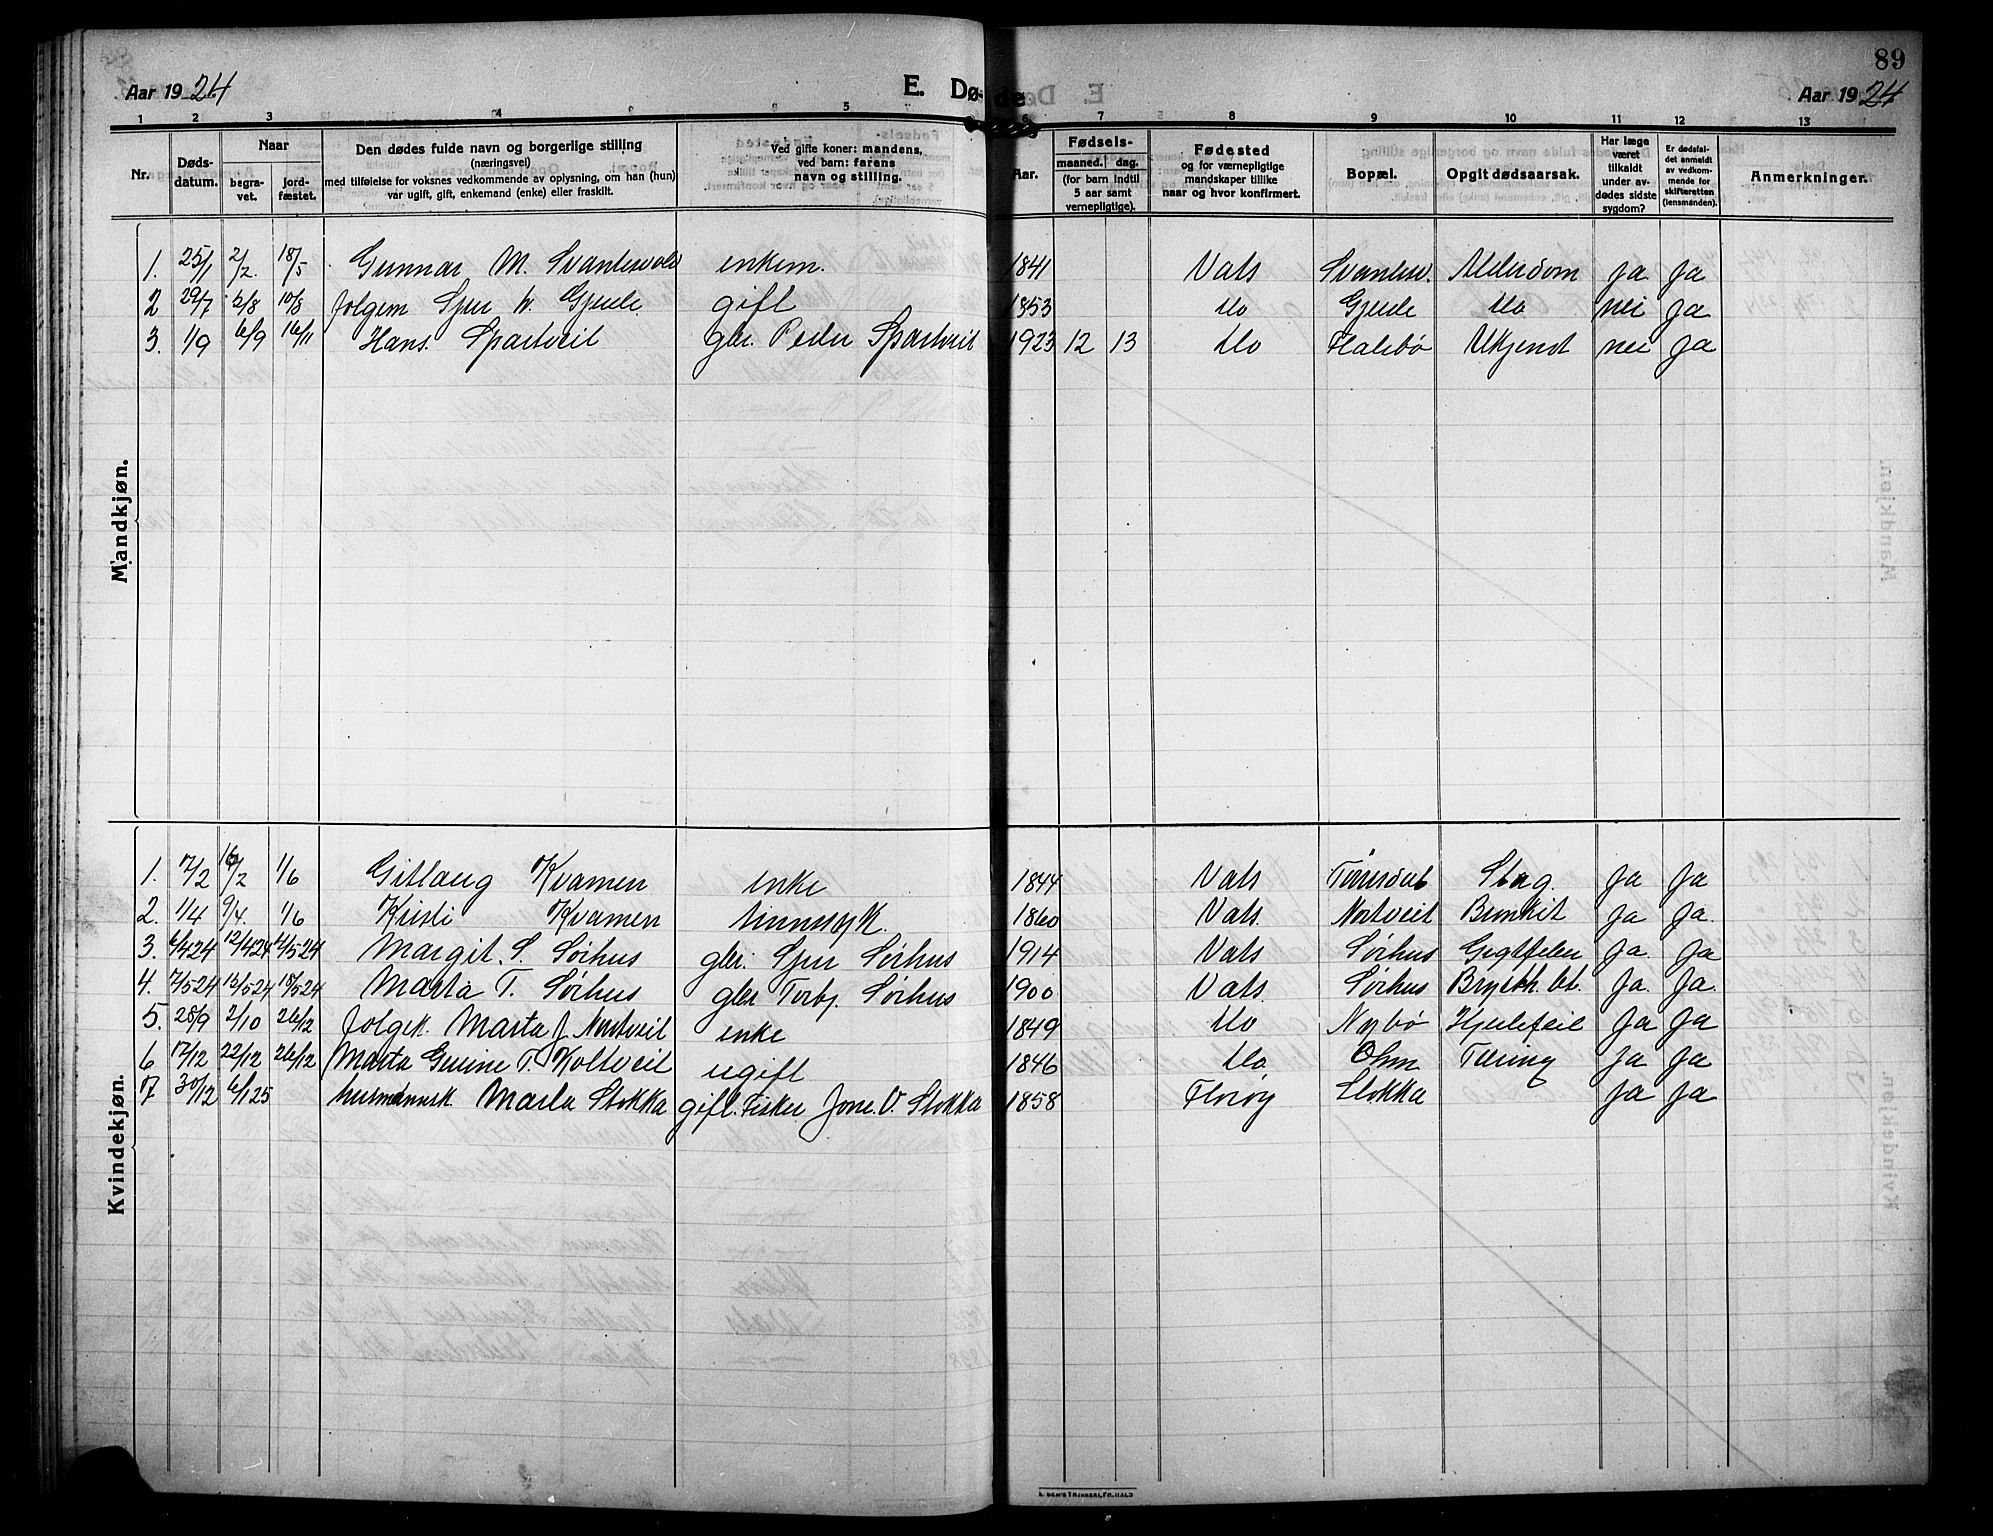 89
Aar 1924 E. Døde Aar 1924
1 2 3 4 5 6 7 8 9 10 11 12 13
Nr. Døds-datum. Naar begra-vet. jord-fæstet. Den dødes fulde navn og borgerlige stilling (næringsvei) med tilføielse for voksnes vedkommende av oplysning, om han (hun) var ugift, gift, enkemand (enke) eller fraskilt. Ved gifte koner: mandens, ved barn: farens navn og stilling. Aar. Fødsels- maaned. dag. (for barn indtil 5 aar samt vernepligtige). Fødested og for værnepligtige mandskaper tillike naar og hvor konfirmert. Bopæl. Opgit dødsaarsak. Har læge været tilkaldt under av-dødes sidste sygdom? Er dødsfal-det anmeldt av vedkom-mende for skifteretten (lensmanden). Anmerkninger.
Mandkjøn.
1. 25/1 2/2. 18/5 Gunnar M. Svantesvold enkem. 1841 Vats Svantesv. Alderdom ja ja
2 29/7 5/8 10/8 folgem Sjur W. Gjerde gift 1853 do Gjerde do nei ja
3. 1/9 6/9 16/11 Hans. Spartveit gbr. Peder Spartveit 1923 12 13 do Flatebø Ukjendt nei ja
Kvindekjøn.
1. 7/2 16/2 1/6 Gitlaug Kvamen enke 1844 Vats Slag. ja ja
2. 1/4 9/4. 1/6 Kristi Kvamen sinnssyk. 1860 Vats. Nortveit Bronkit ja ja.
3. 6/4 24 12/4 24 4/5 24 Margit. S. Sørhus gbr. Sjur Sørhus 1914 Vats Sørhus Gigtfeber ja. ja
4. 7/5 24 13/5 24 18/5 24 Marta T. Sørhus gbr Torbj. Sørhus 1900 Vats. Sørhus Brysth. bt. ja. ja.
5. 28/9 2/10 26/12 folgek. Marta J Nortveit enke 1849 do Nybø Hjertefeil ja ja
6 17/12 22/12 26/12 Marta Gurine T. Koltveit ugift 1846 do Ohm Tæring ja ja
7 30/12 6/1 25 husmannsk. Marta Stokka gift. Fisker Jone. V. Stokka 1858 Florøy Stokka ja ja